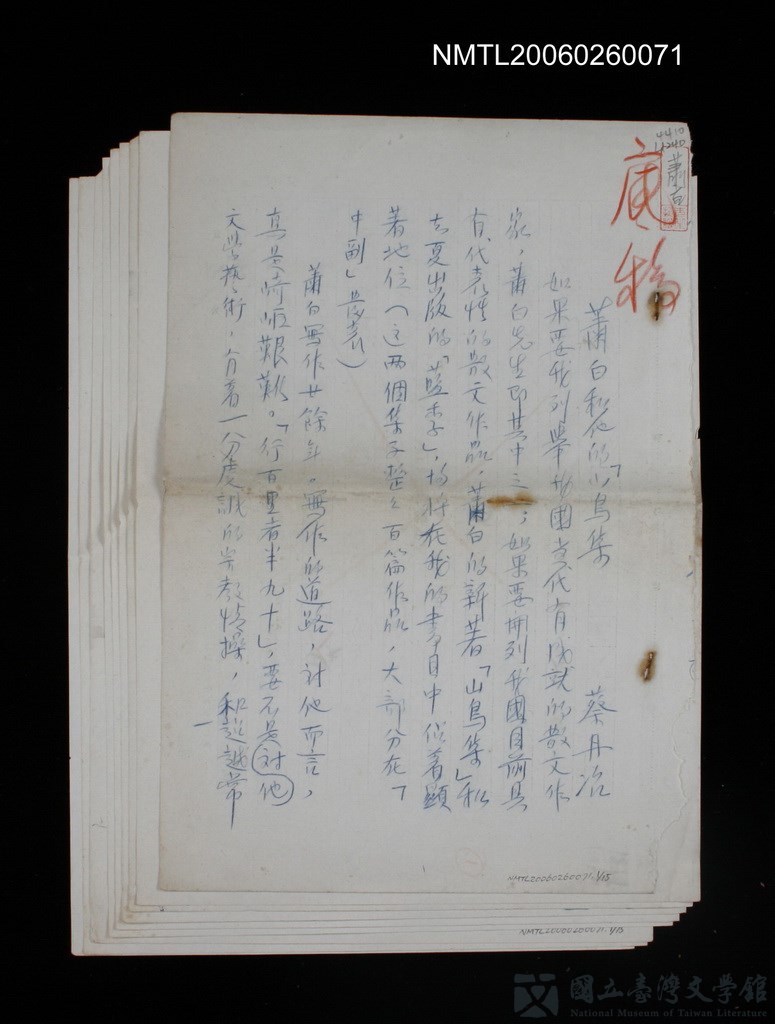 NMTL20060260071
4410
蕭白
底稿
蕭白和他的「山鳥集」
蔡丹冶
如果要我列舉我國當代有成就的散文作
家，蕭白先生即其中之一；如果要開列我國目前具
有代表性的散文作品，蕭白的新著「山鳥集」和
去夏出版的「藍季」，均將在我的書目中佔著顯
著地位（這兩個集子整整百篇作品，大部分在「
中副」發表）
蕭白寫作廿餘年。寫作的道路，對他而言，
真是崎嶇艱難。「行百里者半九十」，要不是對他
文學藝術，有著一分虔誠的宗教情操，和超越常
NMTL20060260071. 1/15
NMTL20060260071. 1/15
國立臺灣文學館
National Museum of Taiwan Literature